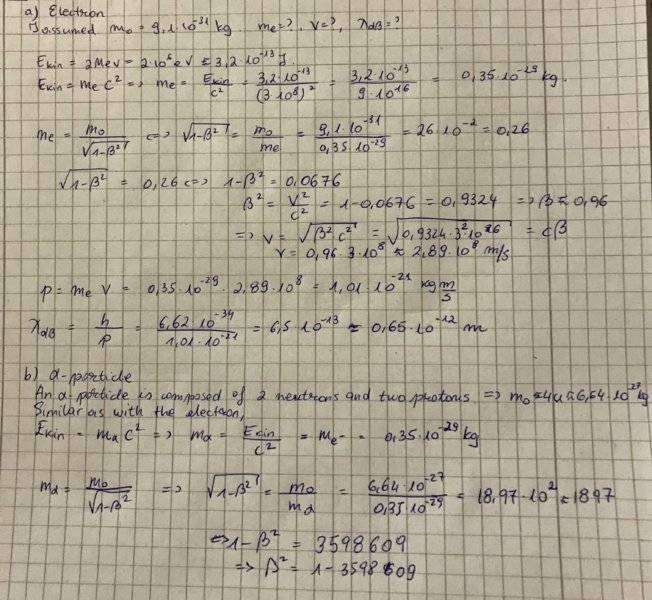 a) Electron
I assumed m₀ = 9,1·10⁻³¹ kg. me=?, v=?, λdB=?
Ekin = 2MeV = 2·10⁶ eV ≈ 3,2·10⁻¹³ J.
Ekin = me c² => me = Ekin/c² = 3,2·10⁻¹³/(3·10⁸)² = 3,2·10⁻¹³/9·10¹⁶ = 0,35·10⁻²⁹ kg.
me = m₀/√(1-β²) <=> √(1-β²) = m₀/me = 9,1·10⁻³¹/0,35·10⁻²⁹ = 26·10⁻² = 0,26
√(1-β²) = 0,26 <=> 1-β² = 0,0676
β² = v²/c² = 1-0,0676 = 0,9324 => β ≈ 0,96
=> v = √(β²c²) = √(0,9324·3²·10¹⁶) = cβ
v = 0,96·3·10⁸ ≈ 2,89·10⁸ m/s
p = me v = 0,35·10⁻²⁹ · 2,89·10⁸ = 1,01·10⁻²¹ kg m/s
λdB = h/p = 6,62·10⁻³⁴/1,01·10⁻²¹ = 6,5·10⁻¹³ ≈ 0,65·10⁻¹² m
b) α-particle
An α particle is composed of 2 neutrons and two protons => m₀ ≈ 4u ≈ 6,64·10⁻²⁷ kg
Similar as with the electron,
Ekin = mα c² => mα = Ekin/c² = me⁻ = 0,35·10⁻²⁹ kg
mα = m₀/√(1-β²) => √(1-β²) = m₀/mα = 6,64·10⁻²⁷/0,35·10⁻²⁹ = 18,97·10² ≈ 1897
<=> 1-β² = 3598609
=> β² = 1-3598609